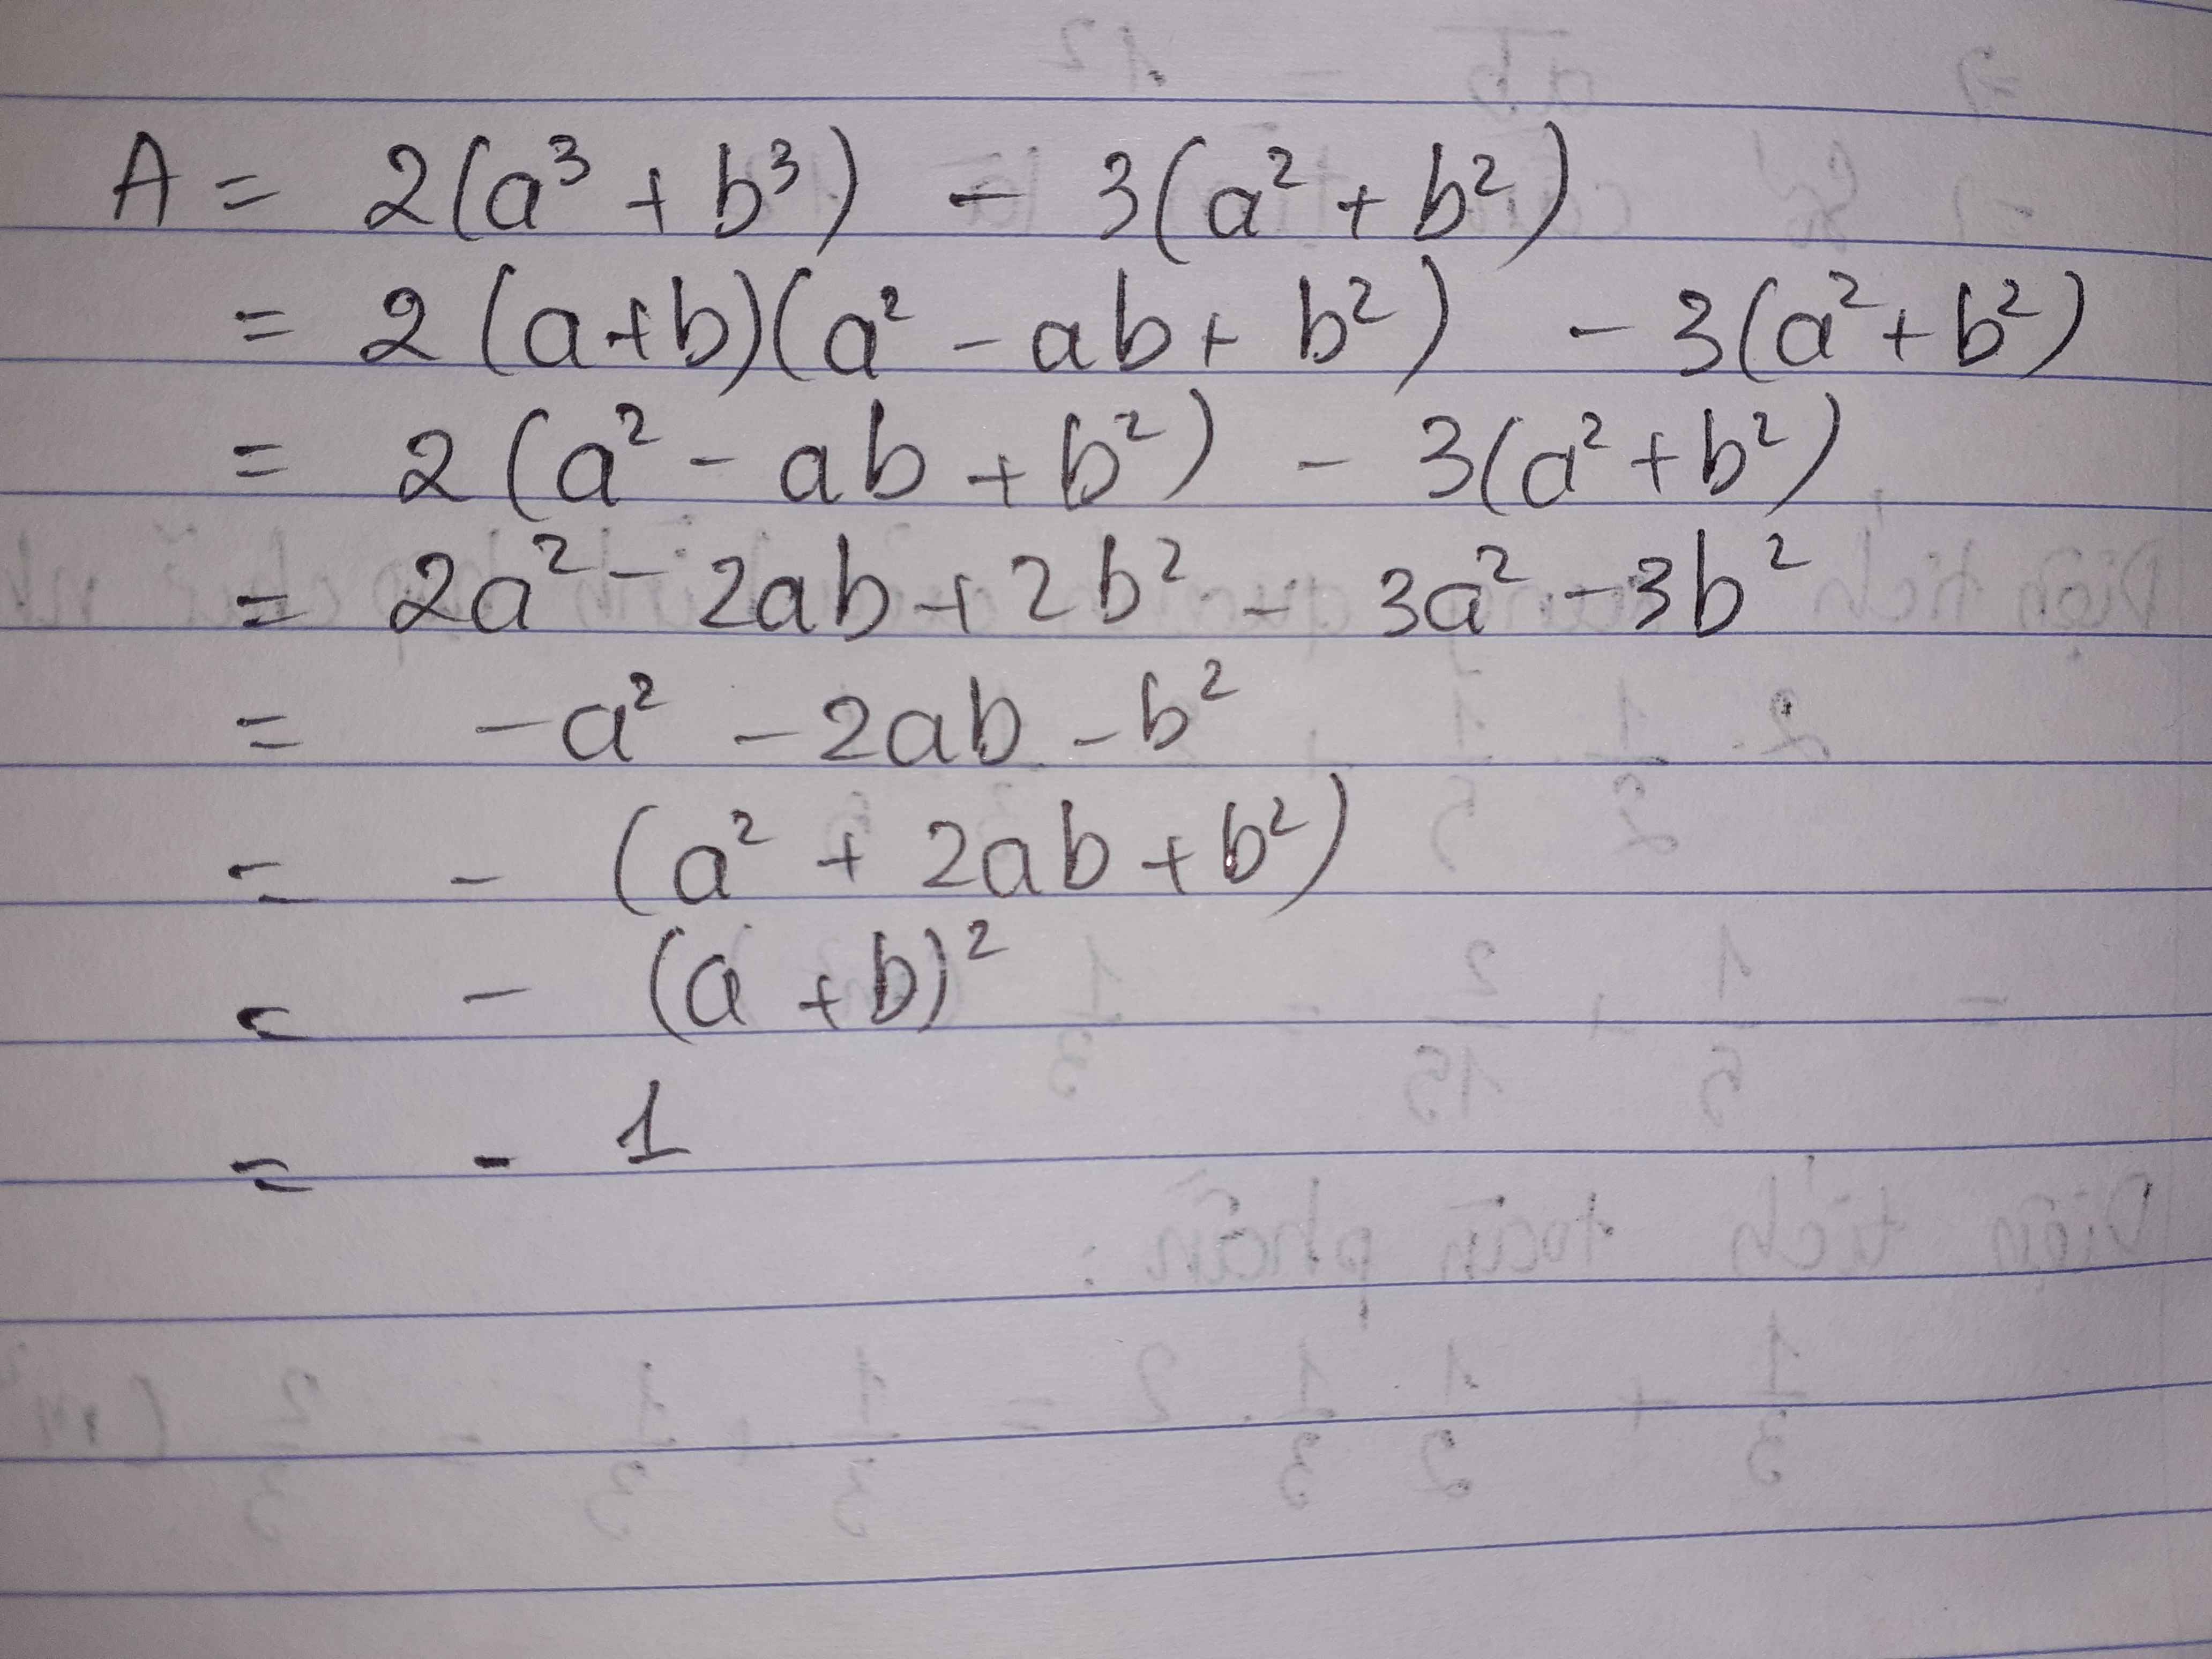 A = 2(a³ + b³) - 3(a² + b²)
= 2 (a+b)(a² - ab + b²) - 3(a² + b²)
= 2 (a² - ab + b²) - 3(a² + b²)
= 2a² - 2ab + 2b² - 3a² - 3b²
= -a² - 2ab - b²
= - (a² + 2ab + b²)
= - (a + b)²
= - 1